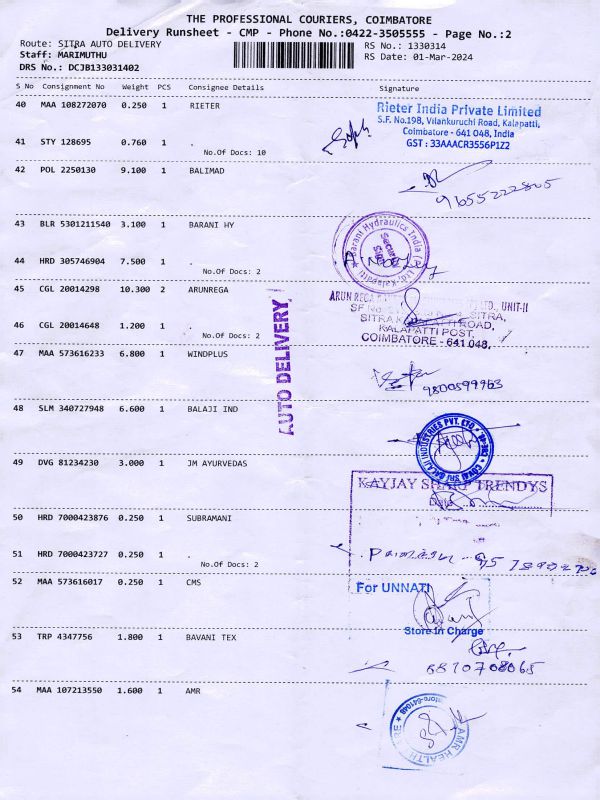 THE PROFESSIONAL COURIERS, COIMBATORE
Delivery Runsheet - CMP - Phone No.:0422-3505555 - Page No.:2
Route: SITRA AUTO DELIVERY
RS No.: 1330314
Staff: MARIMUTHU
RS Date: 01-Mar-2024
DRS No.: DCJB133031402
S No Consignment No Weight PCS Consignee Details Signature
40 MAA 108272070 0.250 1 RIETER
Rieter India Private Limited
S.F. No.198, Vilankuruchi Road, Kalapatti,
Coimbatore - 641 048, India
GST : 33AAACR3556P1Z2
41 STY 128695 0.760 1 .
No.Of Docs: 10
42 POL 2250130 9.100 1 BALIMAD
9655222805
43 BLR 5301211540 3.100 1 BARANI HY
Barani Hydraulics India
44 HRD 305746904 7.500 1 .
No.Of Docs: 2
45 CGL 20014298 10.300 2 ARUNREGA
ARUN REGA LTD., UNIT-II
SITRA,
SITRA ROAD,
KALAPATTI POST,
COIMBATORE - 641 048.
46 CGL 20014648 1.200 1 .
No.Of Docs: 2
AUTO DELIVERY
47 MAA 573616233 6.800 1 WINDPLUS
9800599963
48 SLM 340727948 6.600 1 BALAJI IND
SRI BALAJI INDUSTRIES PVT. LTD.
49 DVG 81234230 3.000 1 JM AYURVEDAS
KAYJAY SHARP TRENDYS
Date
50 HRD 7000423876 0.250 1 SUBRAMANI
51 HRD 7000423727 0.250 1 .
No.Of Docs: 2
52 MAA 573616017 0.250 1 CMS
For UNNATI
Store in Charge
53 TRP 4347756 1.800 1 BAVANI TEX
6810708065
54 MAA 107213550 1.600 1 AMR
AMR HEALTH